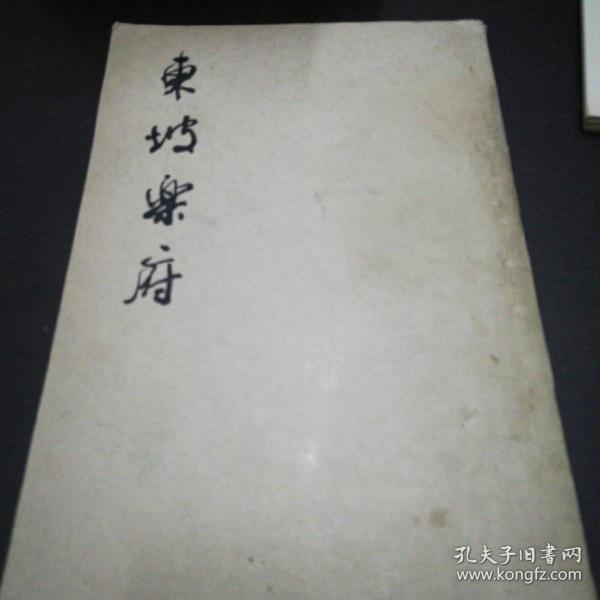 東坡樂府
孔夫子旧書网
www.kongfz.com